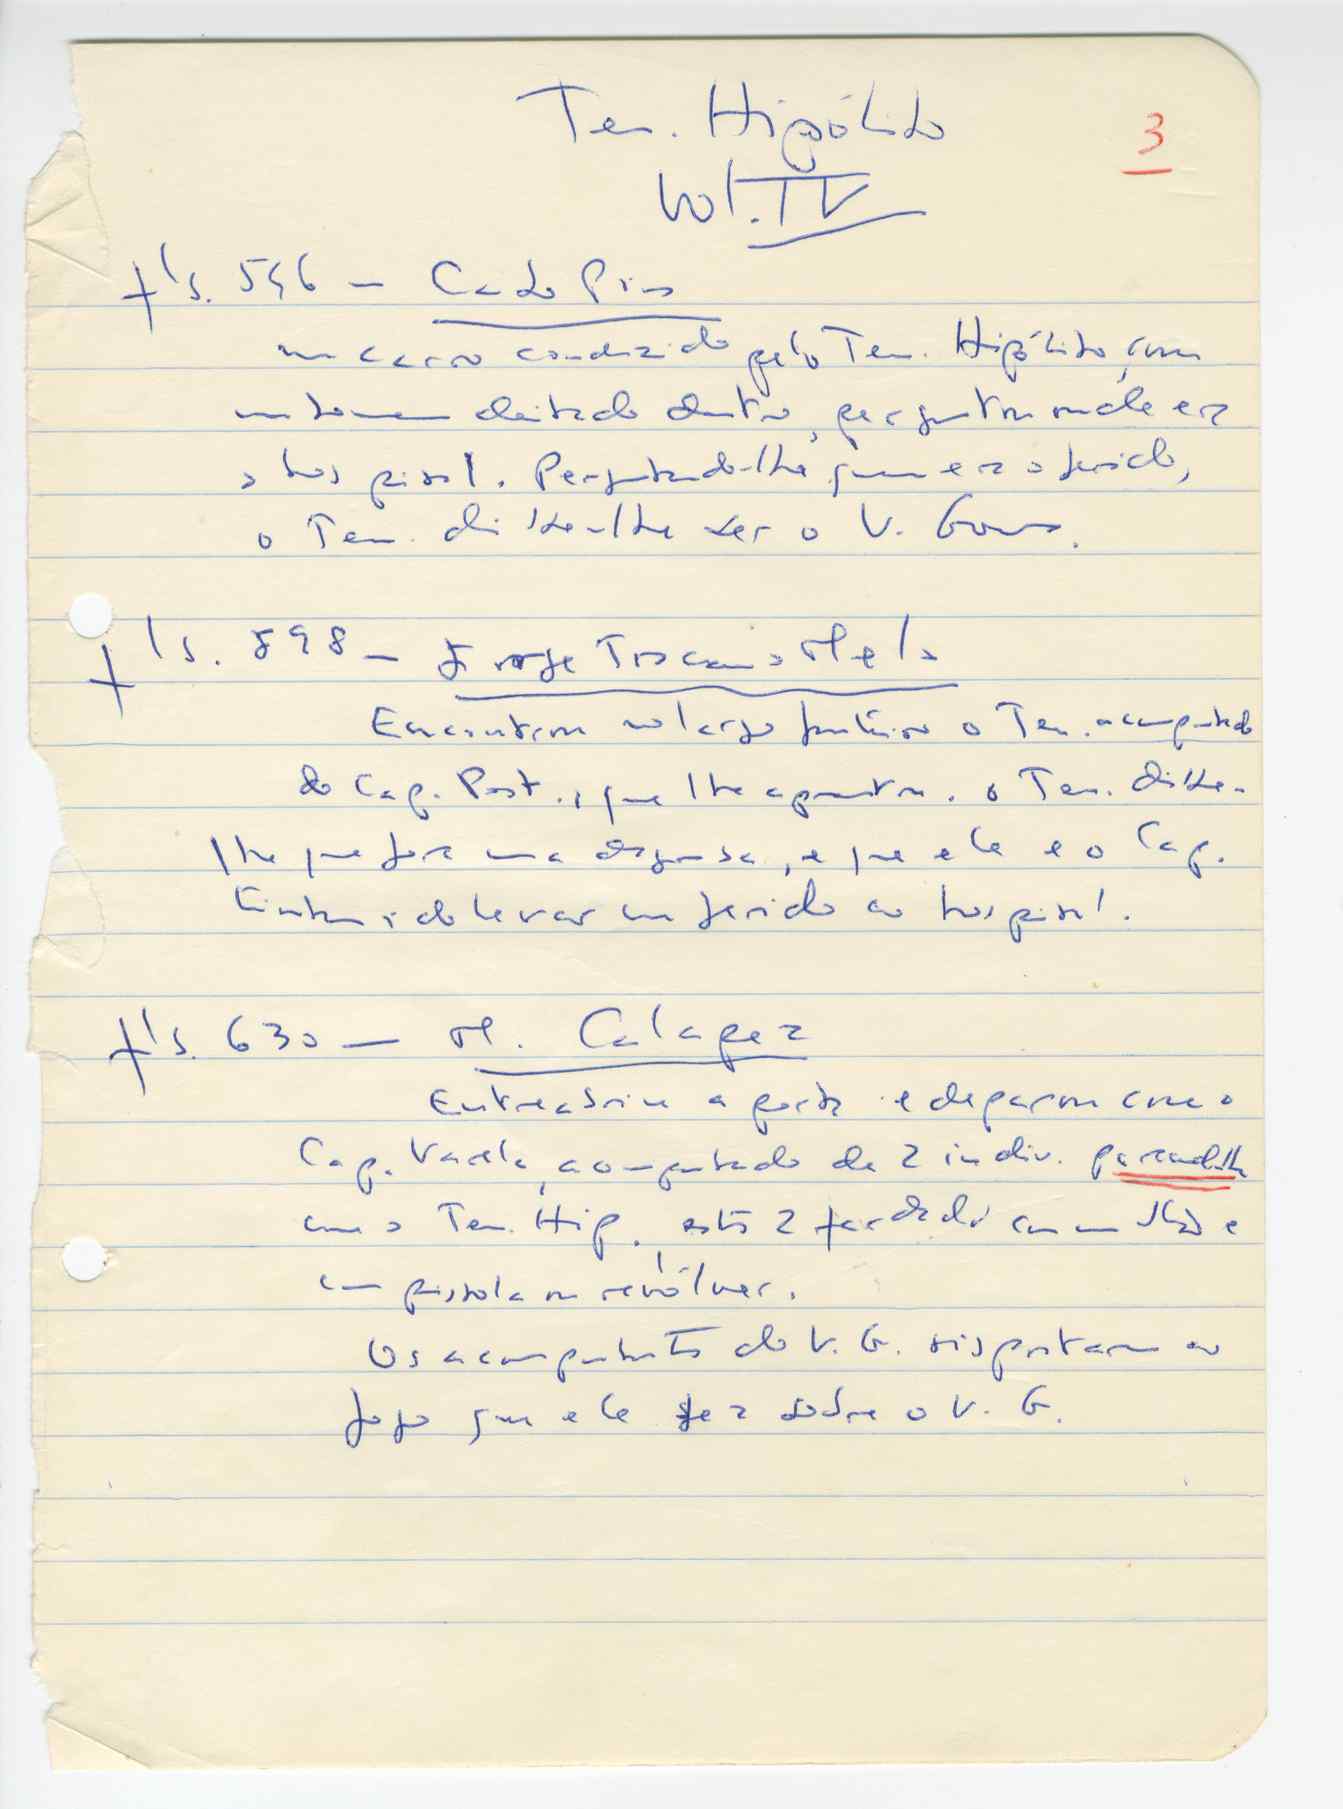 Ten. Hipólito
3
Vol. IV
fls. 546 - Cabo Pires
um carro conduzido pelo Ten. Hipólito, com
um homem deitado dentro, perguntou onde era
o hospital. Perguntando-lhe quem era o ferido,
o Ten. disse-lhe ser o V. Gomes.
fls. 598 - Jorge Toscano Melo
Encontrou no largo fronteiro o Ten. acompanhado
do Cap. Post., que lhe apresentou. o Ten. disse-
lhe que fora uma desgraça, e que ele e o Cap.
tinham ido levar um ferido ao hospital.
fls. 630 - M. Calapez
Entreabriu a porta e deparou com o
Cap. Varela, acompanhado de 2 indiv. parecendo-lhe
com o Ten. Hip., estes 2 fardados com um e
com pistola ou revólver.
Os acompanhantes do V. G. ripostaram ao
fogo que ele fez sobre o V. G.